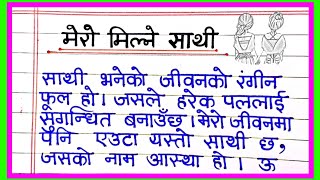 मेरो मिल्ने साथी
साथी भनेको जीवनको रंगीन
फूल हो। जसले हरेक पललाई
सुगन्धित बनाउँछ। मेरो जीवनमा
पनि एउटा यस्तो साथी छ,
जसको नाम आस्था हो। ऊ